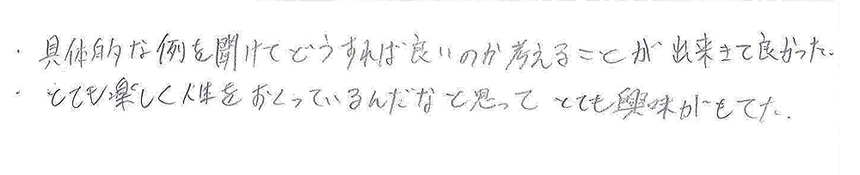 ・具体的な例を聞けてどうすれば良いのか考えることが出来きて良かった.
・とても楽しく人生をおくっているんだなと思って とても興味がもてた.